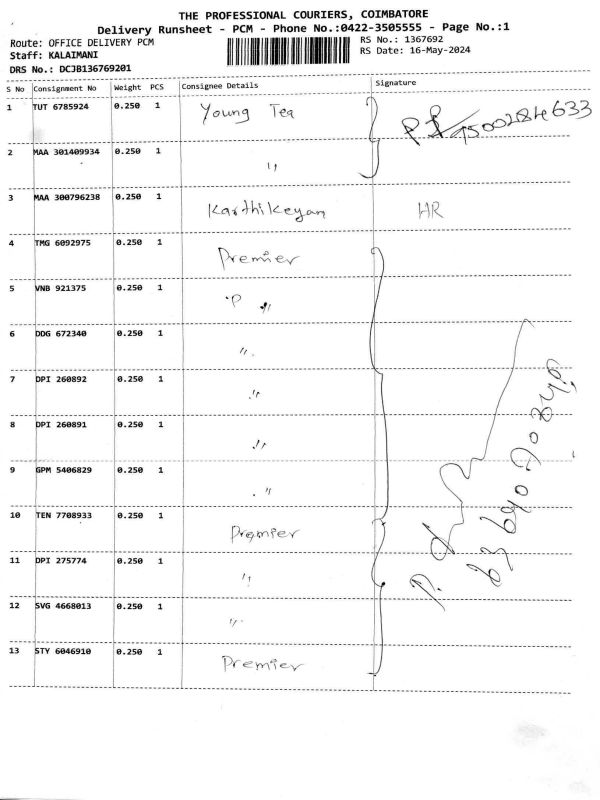 THE PROFESSIONAL COURIERS, COIMBATORE
Delivery Runsheet - PCM - Phone No.:0422-3505555 - Page No.:1
Route: OFFICE DELIVERY PCM
RS No.: 1367692
Staff: KALAIMANI
RS Date: 16-May-2024
DRS No.: DCJB136769201
S No Consignment No Weight PCS Consignee Details Signature
1 TUT 6785924 0.250 1 Young Tea
2 MAA 301409934 0.250 1 "
3 MAA 300796238 0.250 1 Karthikeyan HR
4 TMG 6092975 0.250 1 Premier
5 VNB 921375 0.250 1 P "
6 DDG 672340 0.250 1 "
7 DPI 260892 0.250 1 "
8 DPI 260891 0.250 1 "
9 GPM 5406829 0.250 1 "
10 TEN 7708933 0.250 1 Premier
11 DPI 275774 0.250 1 "
12 SVG 4668013 0.250 1 "
13 STY 6046910 0.250 1 Premier